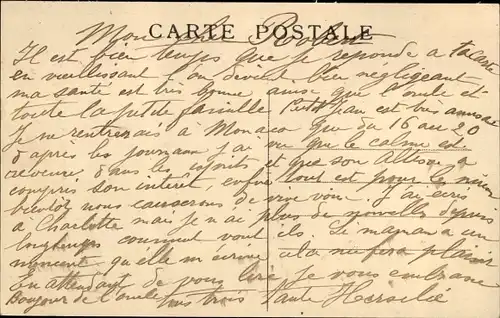 CARTE POSTALE
Mon cher Robert
Il est bien temps que je reponde a ta carte
en vieillissant on devient bien négligeant
ma santé est très bonne ainsi que l'oncle et
toute la petite famille Petit Jean est très amusant
Je ne rentrerais a Monaco que du 16 au 20
d'après les journaux j'ai vu que le calme est
revenu dans les esprits et que son Altesse a
compris son intéret, enfin tout est pour le mieux
bientôt nous causerons de vive voix. J'ai écris
a Charlotte mais je n'ai plus de nouvelles depuis
longtemps comment vont ils. Si maman a un
moment qu'elle m'écrive cela me fera plaisir
En attendant de vous lire je vous embrasse
Bonjour de l'oncle tous trois Tante Hersilie